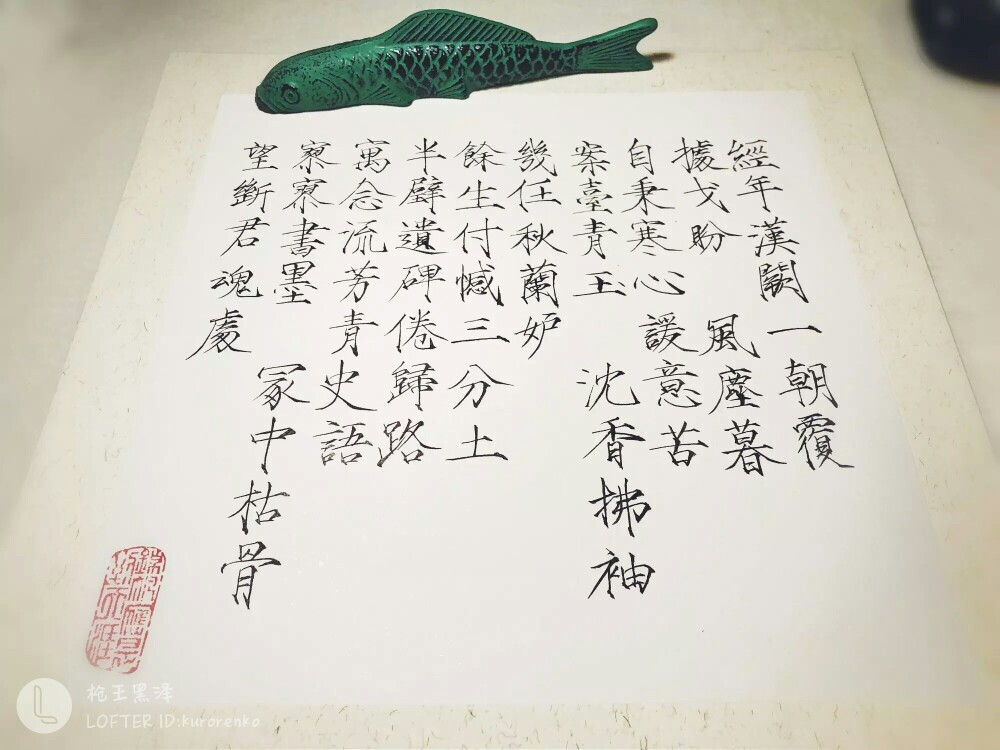 經年漢闕 一朝覆
據戈盼 風塵暮
自秉寒心 諼意苦
案臺青玉 沈香拂袖
幾任秋蘭妒
餘生付憾三分土
半壁遺碑倦歸路
寓念流芳青史語
寮寮書墨 冢中枯骨
望斷君魂處
枪王黑泽
LOFTER ID:kurorenko